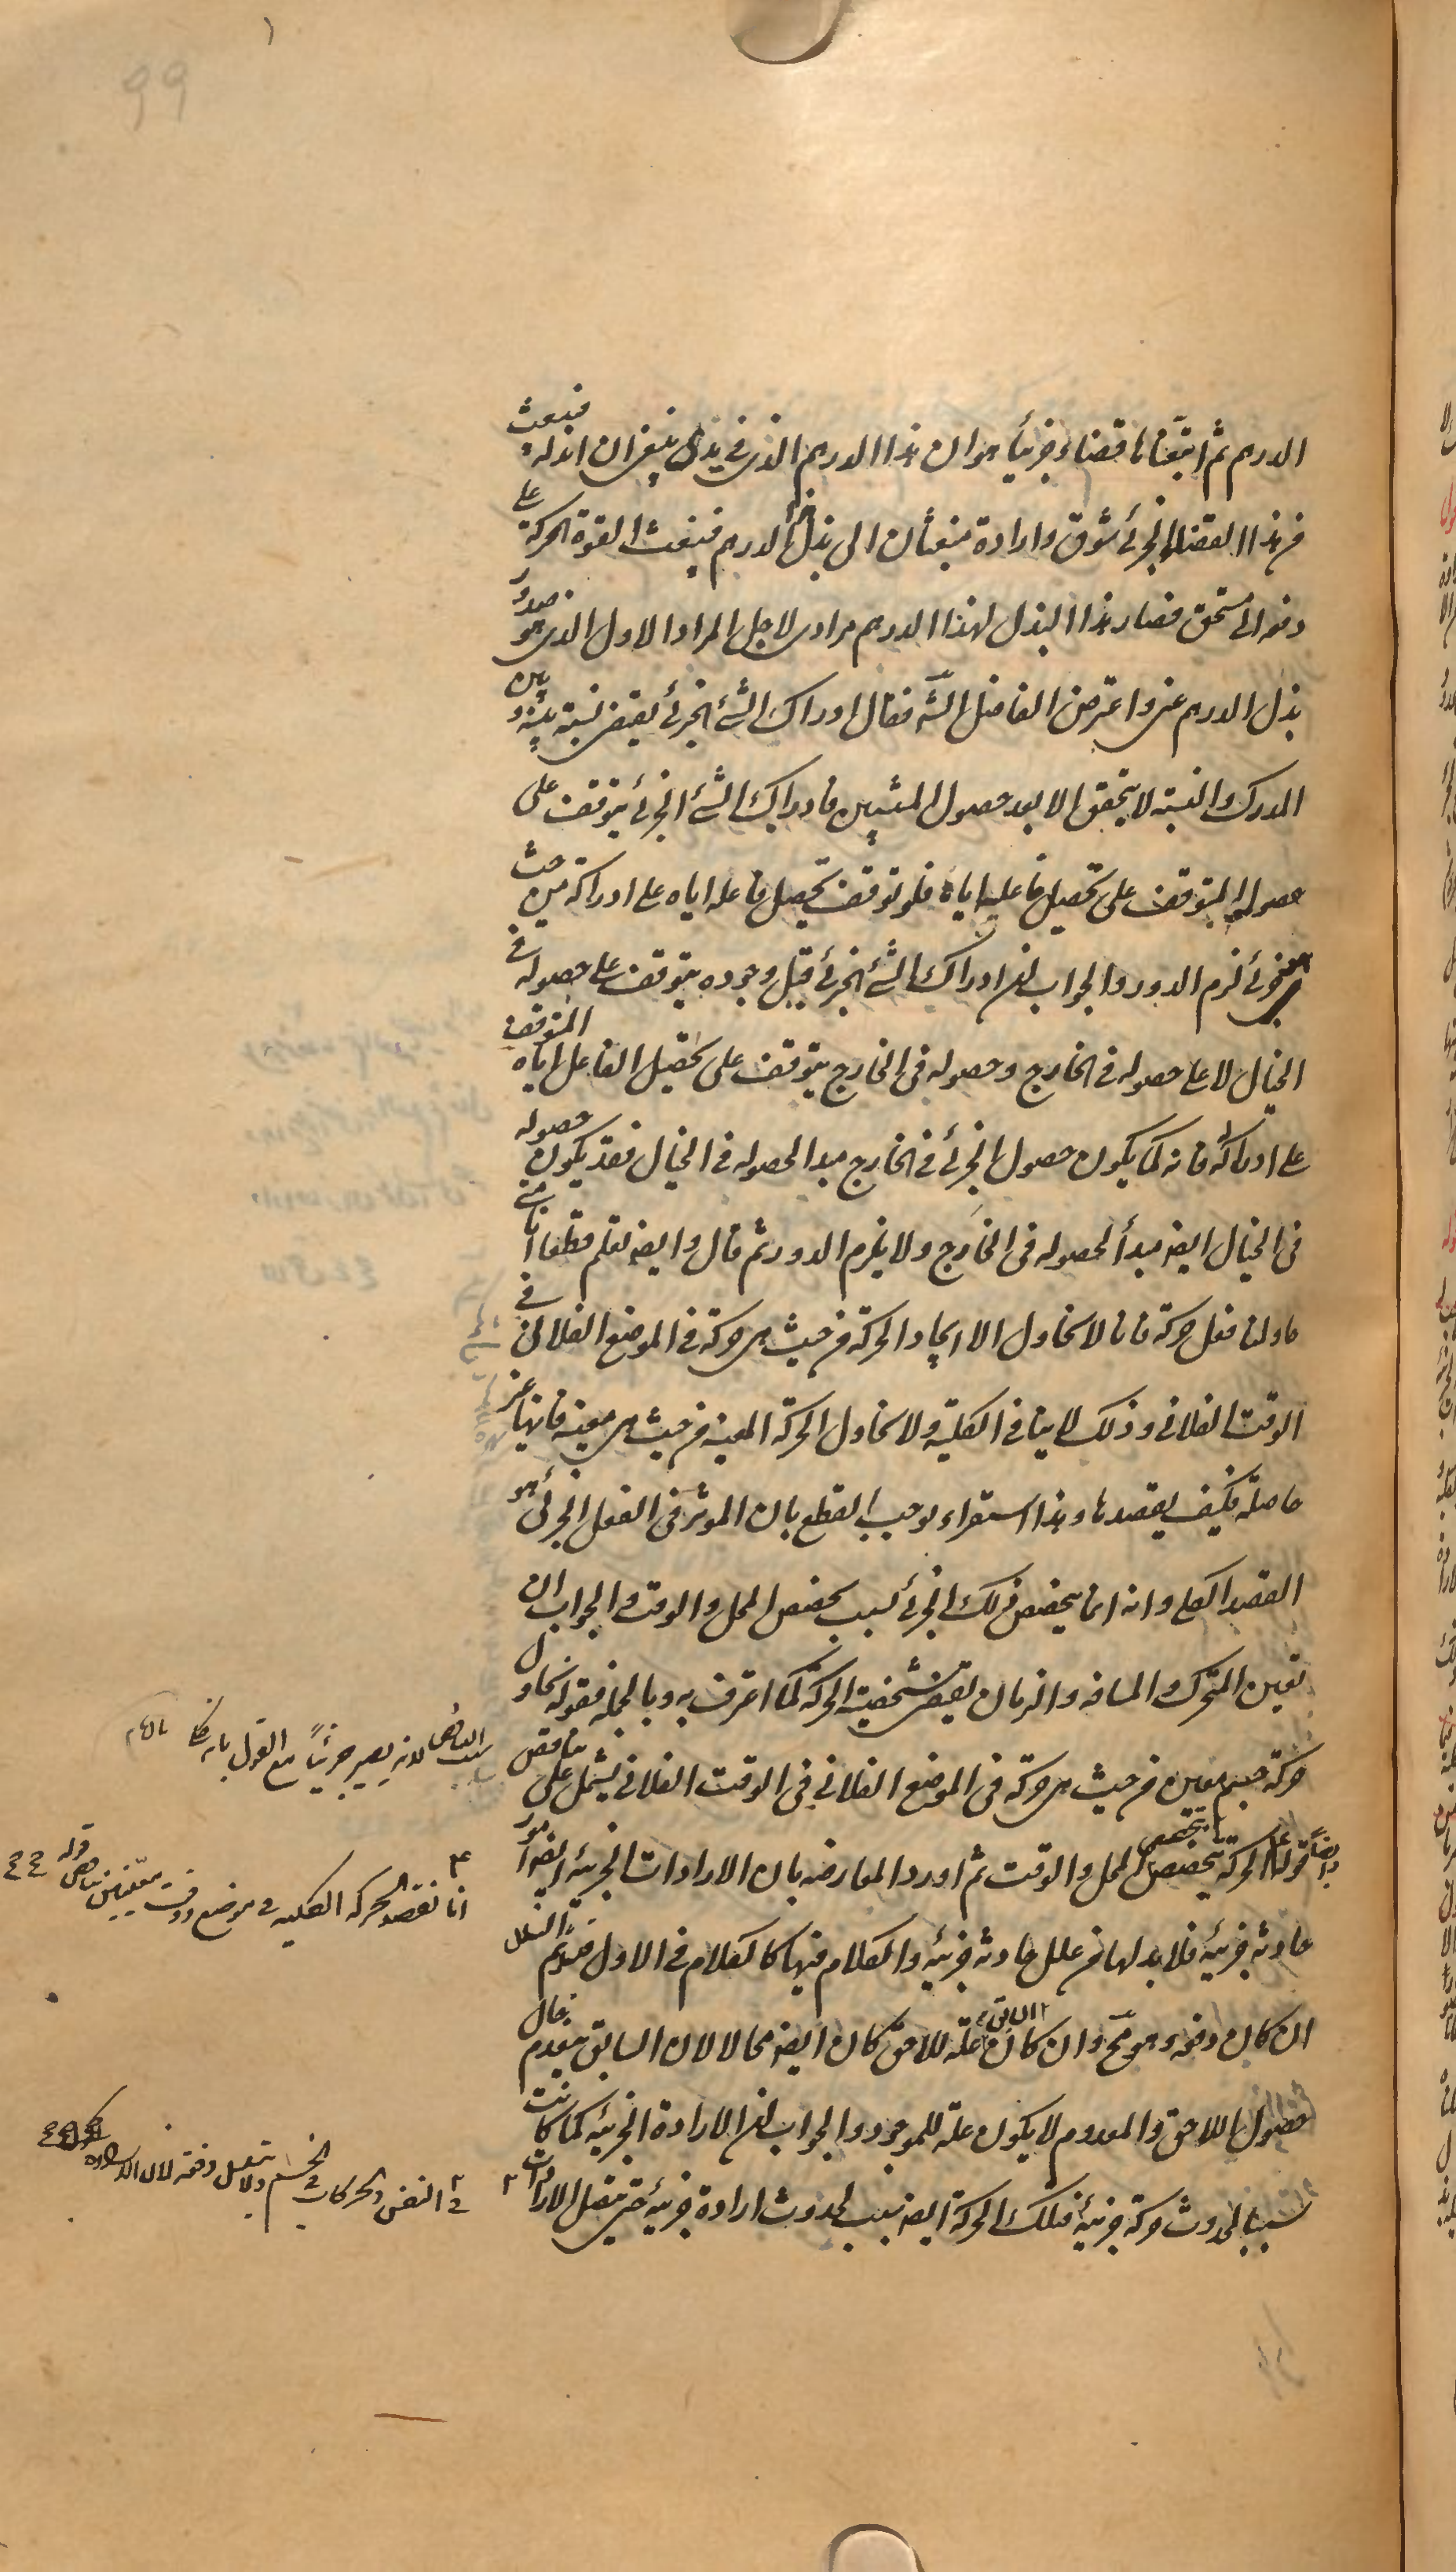 الدرهم ثم اتبعناها قضاء جزئيا هو ان هذا الدرهم الذي في يدي ينبغي ان ابذله فينبعث
من هذا القضاء الجزئي شوق وارادة منبعثان الى بذل هذا الدرهم فينبعث القوة المحركة على
دفعه الى مستحق فصار هذا البذل لهذا الدرهم مرادي لاجل المراد الاول الذي هو صدور
بذل الدرهم عني واعترض الفاضل الش فقال ادراك الشئ الجزئي يقتضي نسبة بينه وبين
المدرك والنسبة لا يتحقق الا بعد حصول المنتسبين فادراك الشئ الجزئي يتوقف على
حصوله المتوقف على تحصيل فاعله اياه فلو توقف تحصيل فاعله اياه على ادراكه من حيث
هو جزئي لزم الدور والجواب ان ادراك الشئ الجزئي قبل وجوده يتوقف على حصوله في
الخيال لا على حصوله في الخارج وحصوله في الخارج يتوقف على تحصيل الفاعل اياه المتوقف
على ادراكه فانه كما يكون حصول الجزئي في الخارج مبدا لحصوله في الخيال فقد يكون حصوله
في الخيال ايضا مبدأ لحصوله في الخارج ولا يلزم الدور ثم قال وايضا نعلم قطعا انا متى
حاولنا فعل حركة فانا لا نحاول الا ايجاد الحركة من حيث هي حركة في الموضع الفلاني في
الوقت الفلاني وذلك لا ينافي الكلية ولا نحاول الحركة المعينة من حيث هي معينة فانها غير
حاصلة فكيف يقصدها وهذا استقراء يوجب القطع بان المؤثر في الفعل الجزئي هو
القصد الكلي وانه انما يتخصص ذلك الجزئي بسبب تخصص المحل والوقت والجواب ان
تعين المتحرك والمسافة والزمان يقتضي شخصية الحركة كما اعترف به وبالجملة فقوله نحاول
حركة جسم معين من حيث هي حركة في الموضع الفلاني في الوقت الفلاني يشتمل على تناقض
الحركة تتخصص بتخصص المحل والوقت ثم اورد المعارضة بان الارادات الجزئية ايضا امور
حادثة جزئية فلا بد لها من علل حادثة جزئية والكلام فيها كالكلام في الاول فيلزم التسلسل
ان كان دفعة وهو مح وان كان السابق علة للاحق كان ايضا محالا لان السابق ينعدم حال
حصول اللاحق والمعدوم لا يكون علة للموجود والجواب ان الارادة الجزئية كما كانت
سببا لحدوث حركة جزئية فتلك الحركة ايضا سبب لحدوث ارادة جزئية حتى يتصل الارادات
لانه يصير جزئيا مع القول بانه
انا نقصد الحركة الكلية في موضع ووقت معينين تناقض قوله
في النفس والحركات في الجسم ولا تتصل دفعة لان
99